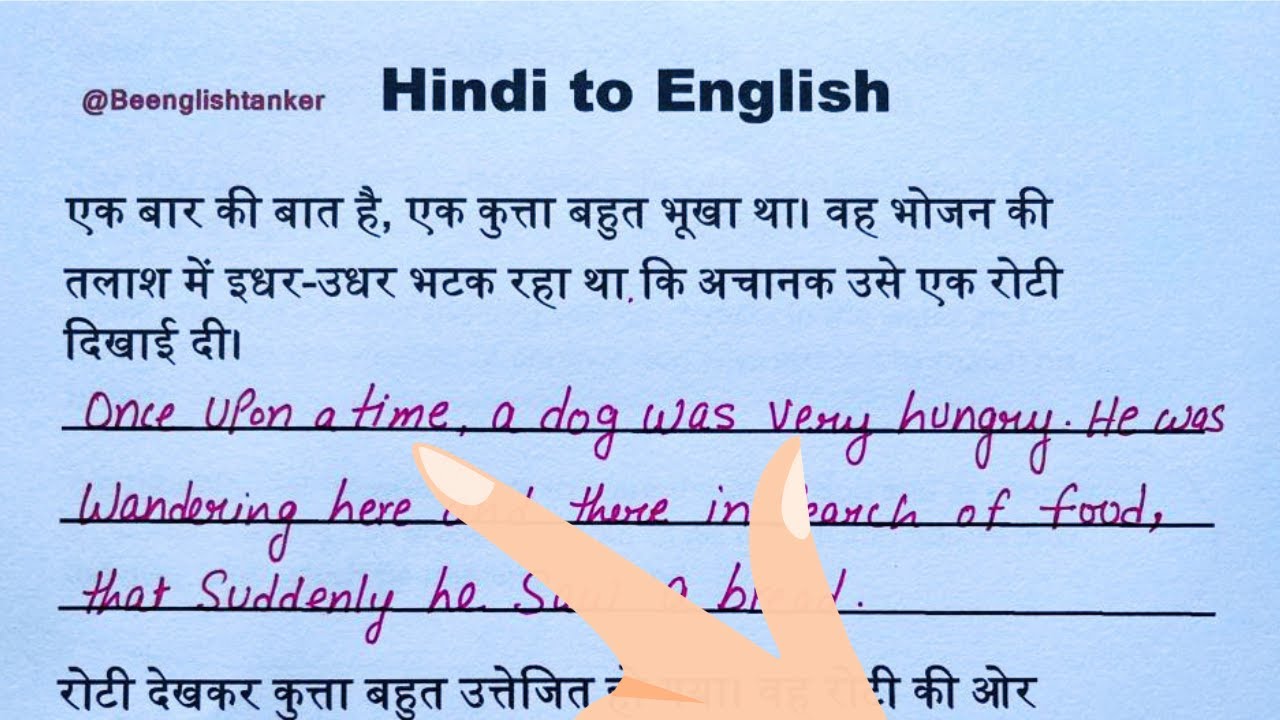 @Beenglishtanker Hindi to English
एक बार की बात है, एक कुत्ता बहुत भूखा था। वह भोजन की
तलाश में इधर-उधर भटक रहा था कि अचानक उसे एक रोटी
दिखाई दी।
Once upon a time, a dog was very hungry. He was
Wandering here there in of food,
that Suddenly he a
रोटी देखकर कुत्ता बहुत उत्तेजित वह रोटी की ओर